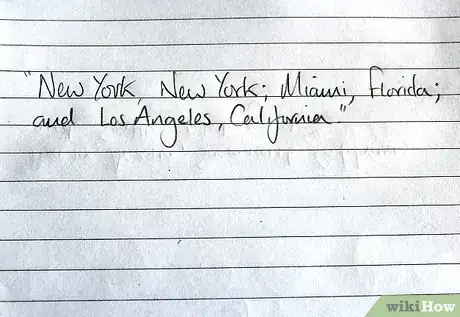 "New York, New York; Miami, Florida;
and Los Angeles, California."
wikiHow